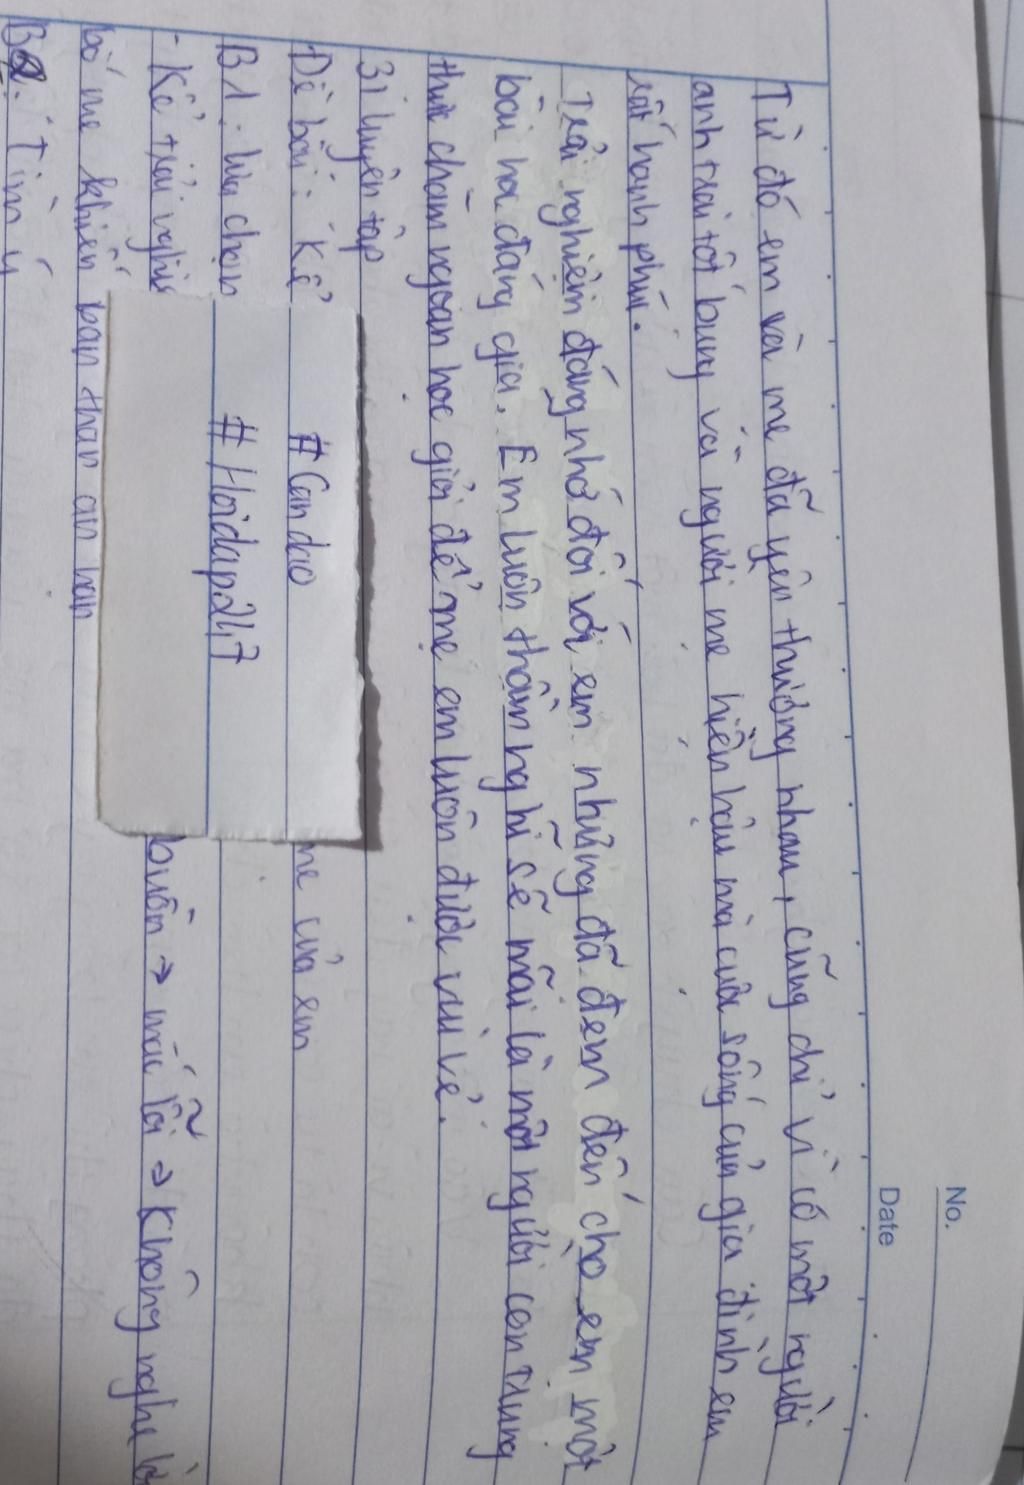 No.
Date
Từ đó em và mẹ đã yên thương nhau, cũng chỉ vì có một người
anh trai tốt bụng và người mẹ hiền hậu mà cuộc sống của gia đình em
rất hạnh phúc.
Trải nghiệm đáng nhớ đối với em những đã đem đến cho em một
bài học đáng giá. Em luôn thầm nghĩ sẽ mãi là một người con trung
thực chăm ngoan học giỏi để mẹ em luôn được vui vẻ.
3. luyện tập
Đề bài: Kể
me của em
B1. lựa chọn
- Kể trải nghiệ
buồn → mắc lỗi → Không nghe lời
bố mẹ khiến bạn thân ân hận
B2: Tìm ý
#Candao
#Hoidap247